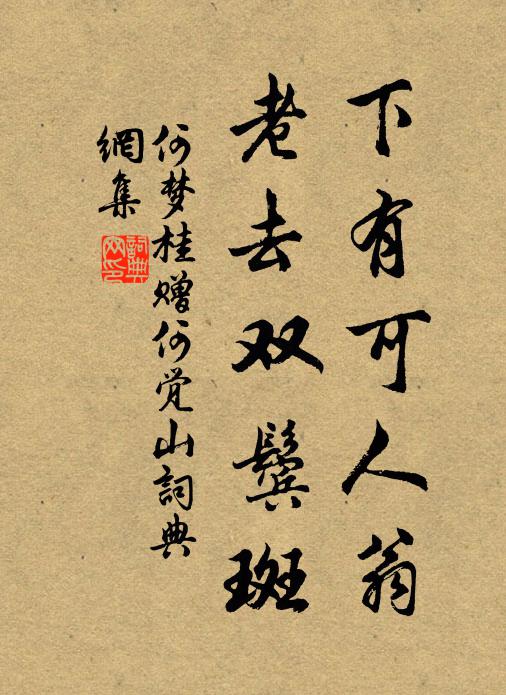 下有可人翁
老去双鬓斑
何梦桂赠何觉山詞典
網集
詞典
网印